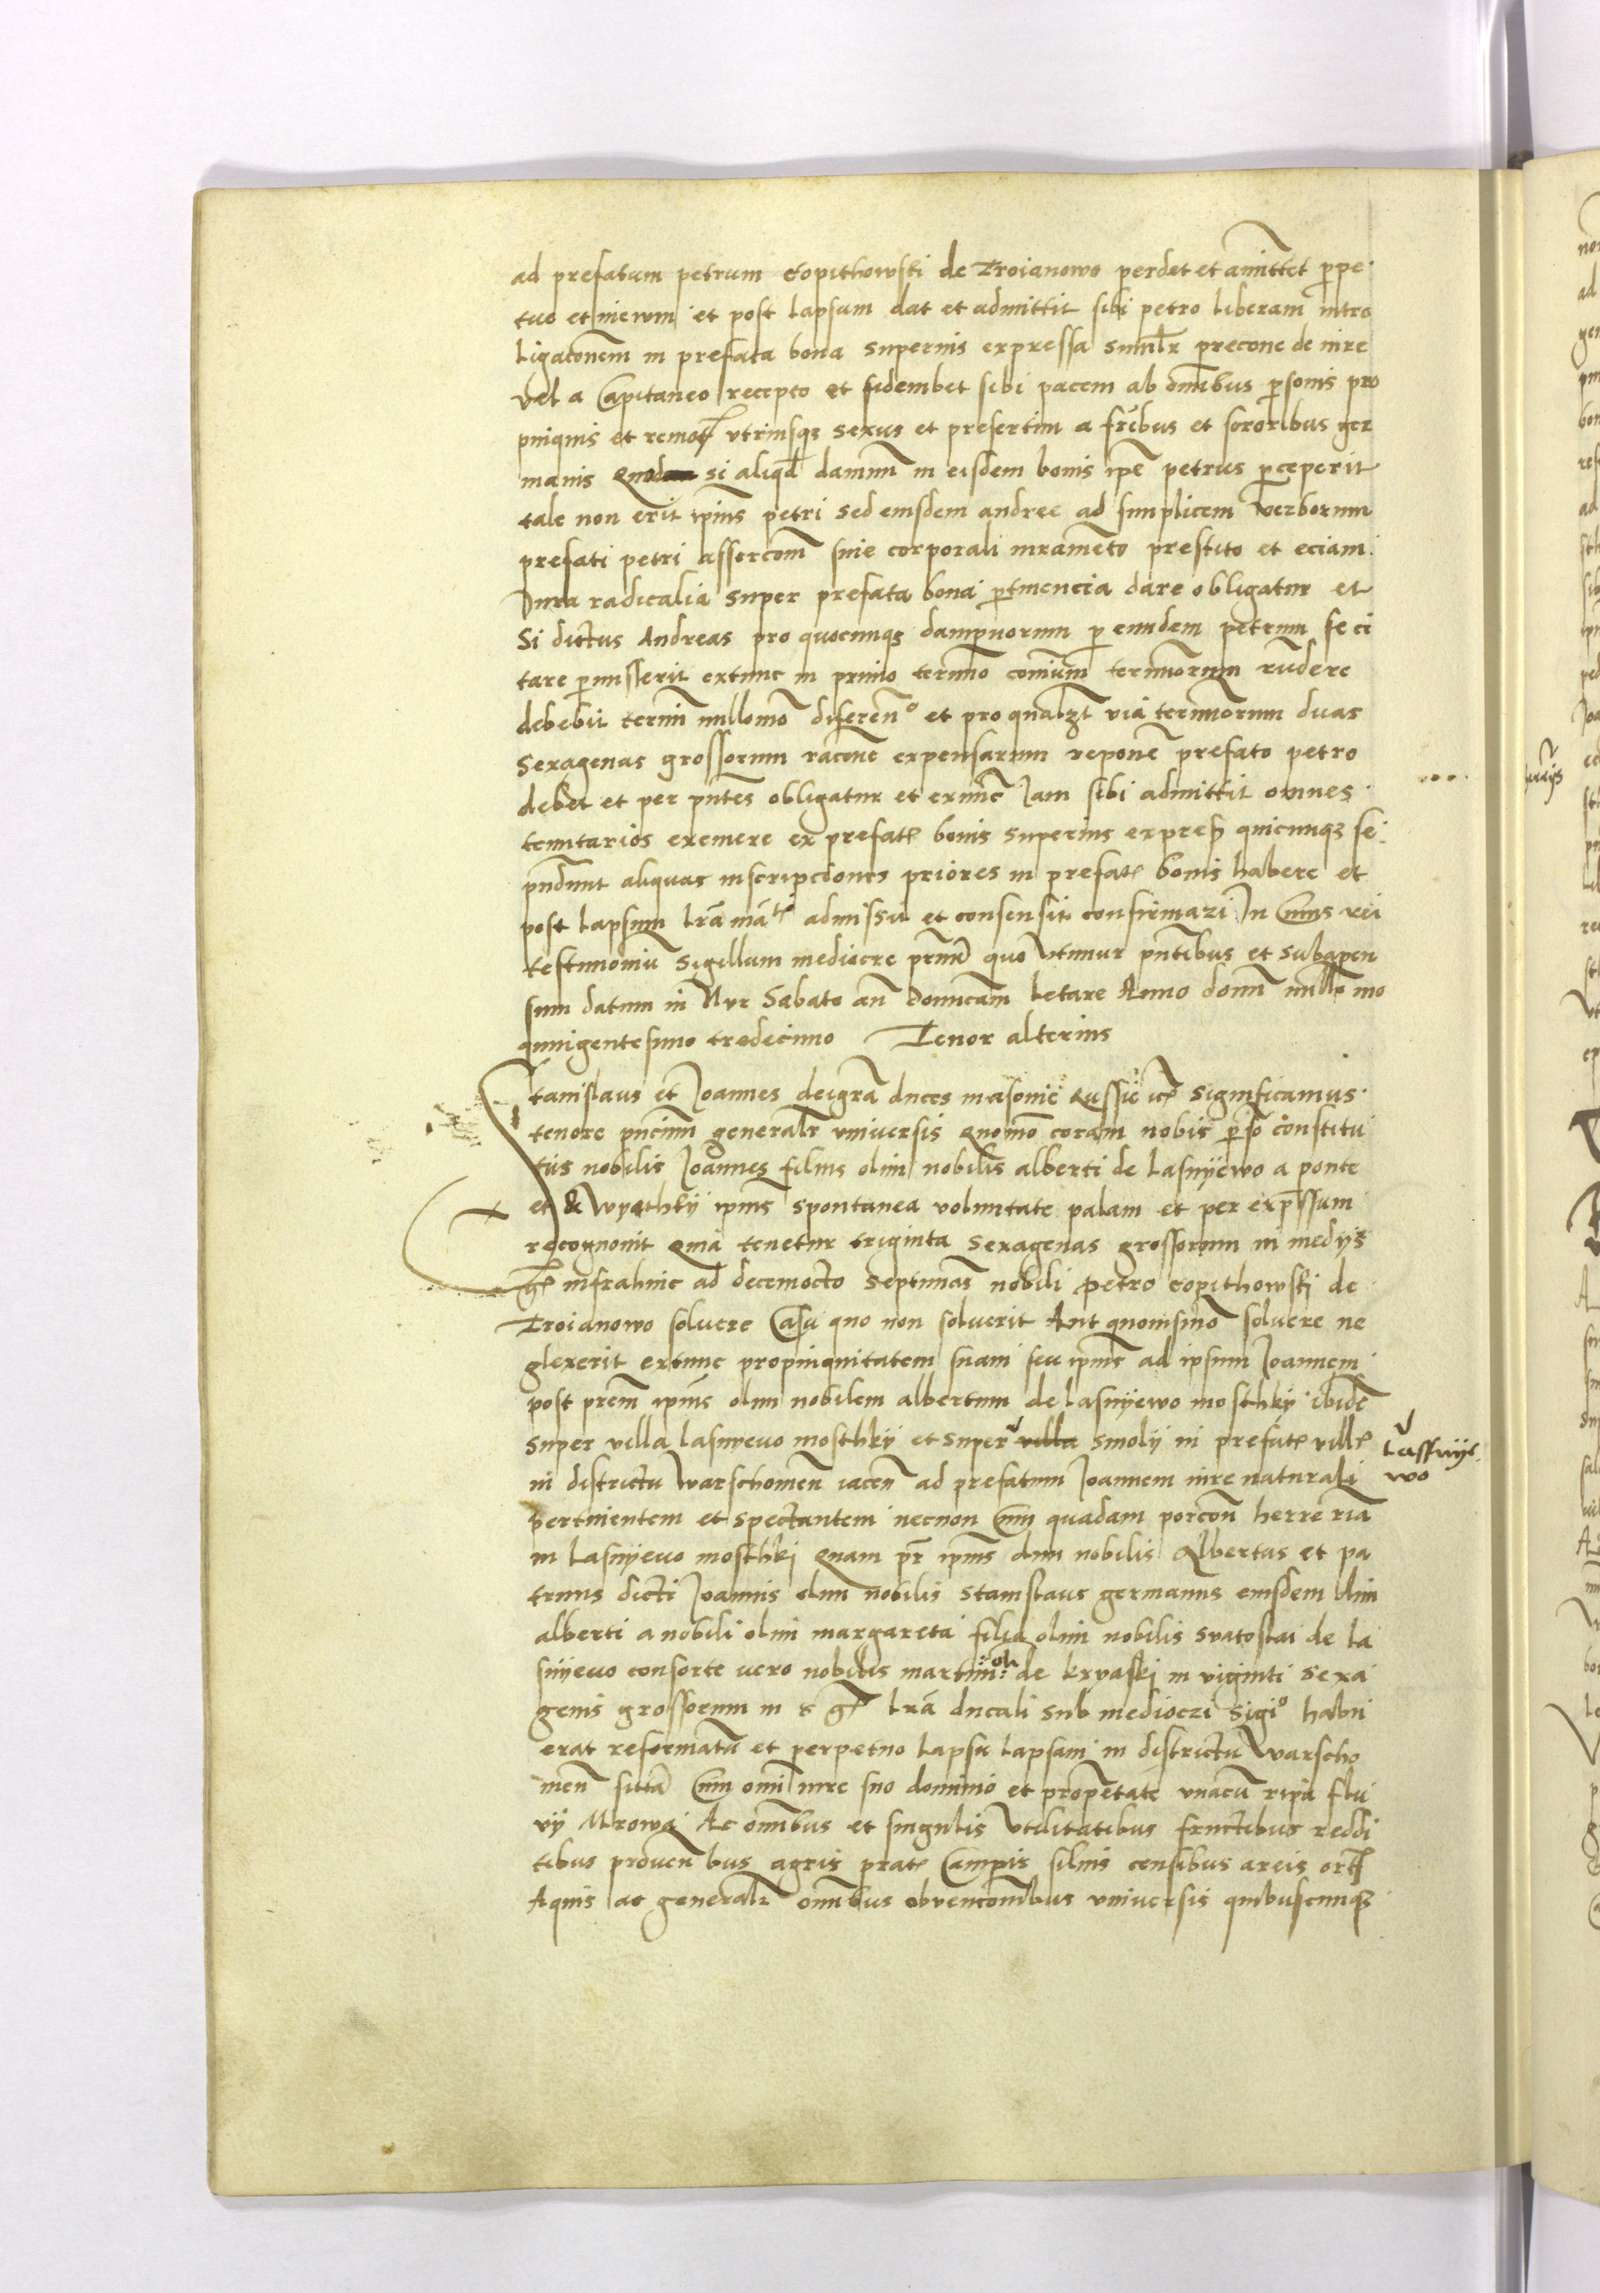 ad prefatum petrum copithowski de Troianowo perdet et amittet ppe
tuo et inewm et post lapsum dat et admittit sibi petro liberam intro
ligatonem in prefata bona superius expressa simlr precone de iure
vel a Capitaneo recepto et fidembet sibi pacem ab omibus psonis pro
pinquis et remot vtriusqz sexus et presertim a fribus et sororibus ger
manis Quod si aliqd damnu in eisdem bonis ipe petrus pceperit
tale non erit ipius petri sed eiusdem andree ad simplicem verborum
prefati petri assercom sine corporali iurameto prestito et eciam
Iura radicalia super prefata bona ptinencia dare obligatur et
Si dictus Andreas pro quocunqz dampnorum p eundem petrum se ci
tare pmisserit extunc in primo termio comium terminorum rndere
debebit termi nullomo diferen et pro qualzt via terminorum duas
sexagenas grossorum racone expensarum repone prefato petro
debet et per pntes obligatur et exnuc Iam sibi admittit omnes
tenutarios exemere ex prefat bonis superius expres quicunqz se
pndunt aliquas inscripciones priores in prefat bonis habere et
post lapsum lram admissu et consensit confirmari In Cuius rei
testimoniu sigillum mediocre quo vtimur pntibus et subappen
sum datum in Nur Sabato an Domicam letare Anno domi millo mo
quingentesimo tredecimo Tenor alterius
Stanislaus et Joannes dei gra duces masouie Russie ic significamus
tenore pncium generalr vniuersis Quomo coram nobis pso constitu
tus nobilis Joannes filius olim nobilis alberti de lasnyewo a ponte
et & wyathky ipius spontanea voluntate palam et per expssum
recognouit Quia tenetur triginta sexagenas grossorum in medys
g infrahinc ad decemocto septimas nobili petro copithowski de
Troianowo soluere Casu quo non soluerit Aut quouismo soluere ne
glexerit extunc propinquitatem suam seu ipius ad ipsum Joannem
post prem ipius olim nobilem albertum de lasnyewo moschky ibide
super villa lasnyewo mosthky et super villa smoly in prefat vill
Lassnye
wo
in districtu warschouien iacen ad prefatum Joannem iure naturali
pertinentem et spectantem necnon Cum quadam porcon herre ria
in lasnyewo mosthki Quam pr ipius olim nobilis Albertus et pa
truus dicti Joannis olim nobilis stanislaus germanus eiusdem olim
alberti a nobili olim margareta filia olim nobilis svatoslai de la
snyeuo consorte vero nobilis martini ol de kryaski in viginti sexa
genis grossorum in s g lra ducali sub mediocri sigio habu
erat reformatu et perpetuo lapsu lapsam in districtu warscho
uien sitta Cum omi iure suo dominio et propetate vnacu ripa flu
vy Mrowa Ac omibus et singulis vtilitatibus fructibus reddi
tibus prouen bus agris prat Campis siluis censibus areis ort
Aquis ac generalr omibus obuenconibus vniuersis quibuscunqz